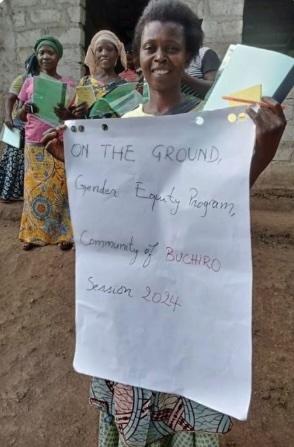 ON THE GROUND,
Gender Equity Program,
Community of BUCHIRO
Session 2024